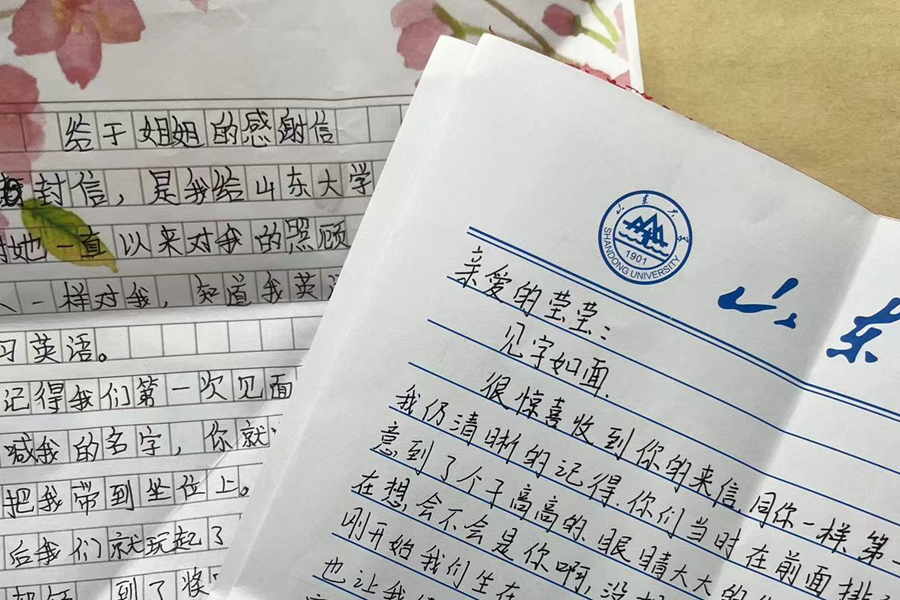 给于姐姐的感谢信
封信，是我给山东大学
她一直以来对我的照顾
一样对我，知道我英
习英语。
记得我们第一次见面
喊我的名字，你就
把我带到坐位上。
后我们就玩起了
到了
山东大
SHANDONG UNIVERSITY
1901
山东
亲爱的莹莹：
见字如面.
很惊喜收到你的来信,同你一样第一
我仍清晰的记得.你们当时在前面排
意到了个子高高的、眼睛大大的
在想,会不会是你啊,没
刚开始我们坐在
也让我